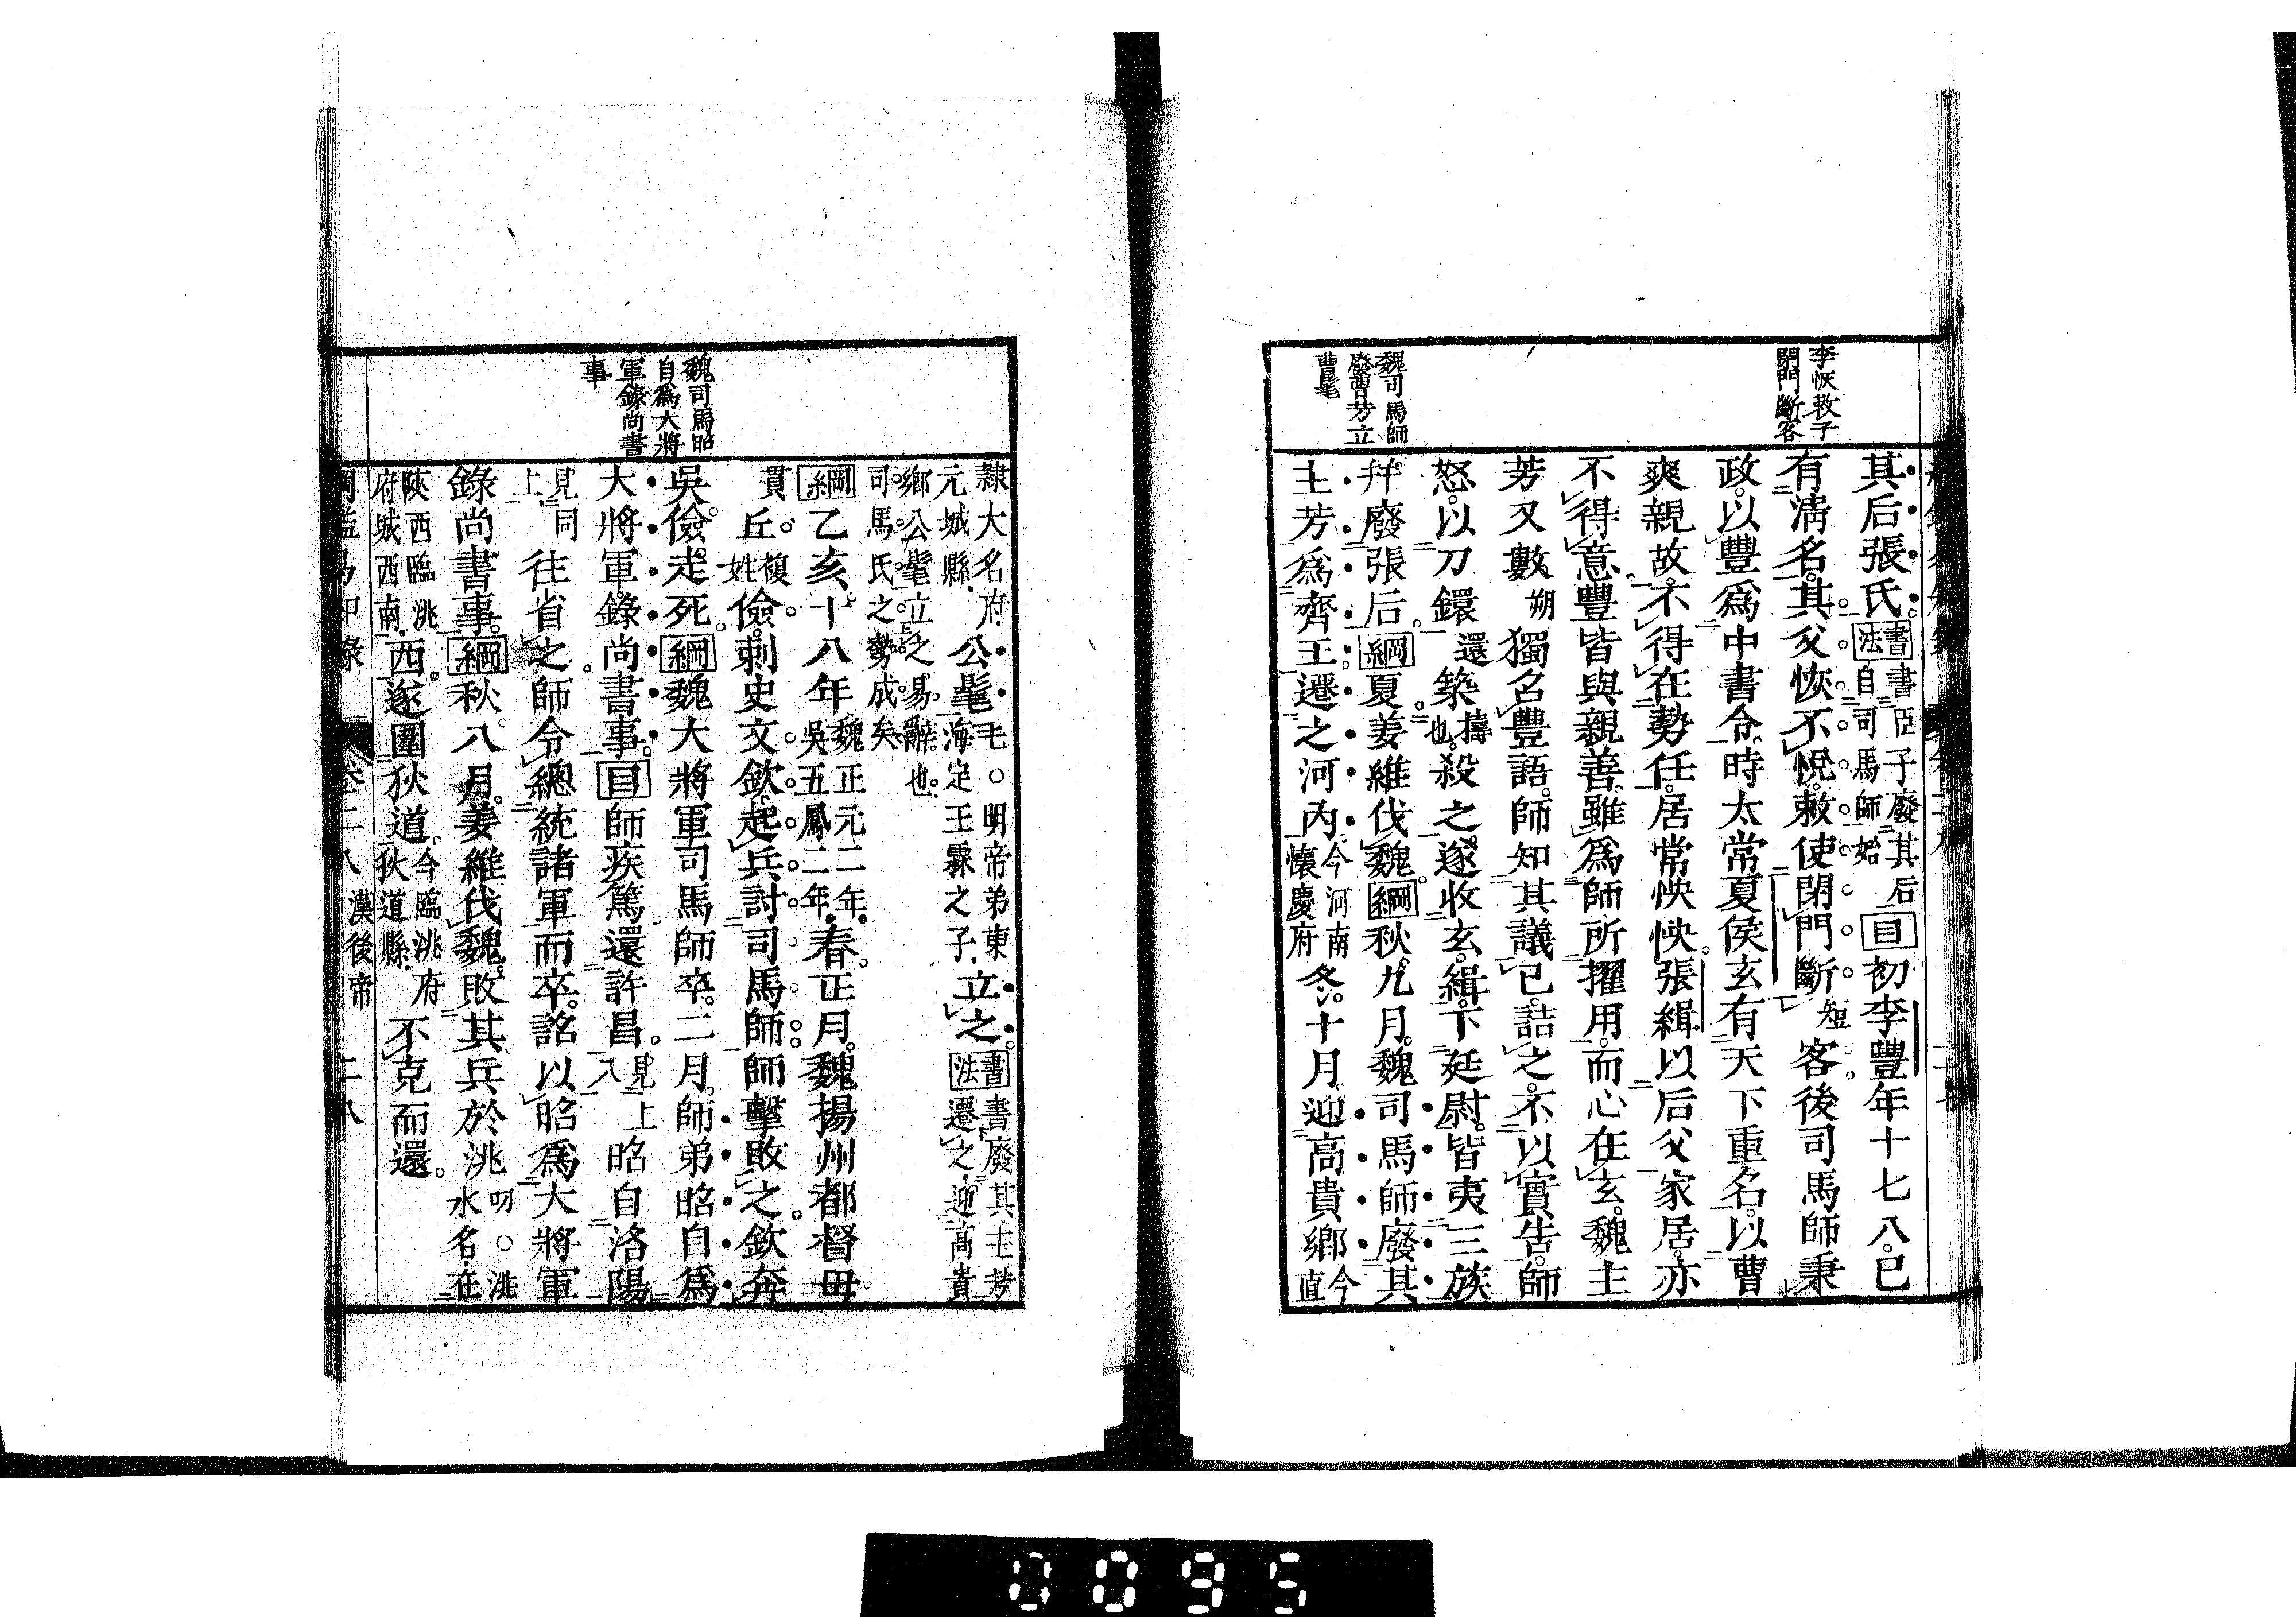 李恢敕子
閉門斷客
魏司馬師
廢曹芳立
曹髦
其后張氏書法書臣子廢其后自司馬師始目初李豐年十七八已
有清名其父恢不悅敕使閉門斷短客後司馬師秉
政以豐爲中書令時太常夏侯玄有天下重名以曹
爽親故不得在勢任居常怏怏張緝以后父家居亦
不得意豐皆與親善雖爲師所擢用而心在玄魏主
芳又數朔獨召豐語師知其議己詰之不以實告師
怒以刀鐶還築擣也殺之遂收玄緝下廷尉皆夷三族
幷廢張后綱夏姜維伐魏綱秋九月魏司馬師廢其
主芳爲齊王遷之河內今河南懷慶府冬十月迎高貴鄉今直
魏司馬昭
自爲大將
軍錄尚書
事
隸大名府元城縣公髦毛○明帝弟東海定王霖之子立之書法書廢其主芳遷之迎高貴
鄉公髦立之易辭也司馬氏之勢成矣
綱乙亥十八年魏正元二年吳五鳳二年春正月魏揚州都督毌
丘複姓儉刺史文欽起兵討司馬師師擊敗之欽奔
吳儉走死綱魏大將軍司馬師卒二月師弟昭自爲
大將軍錄尚書事目師疾篤還許昌見上八昭自洛陽
見上同往省之師令總統諸軍而卒詔以昭爲大將軍
錄尚書事綱秋八月姜維伐魏敗其兵於洮叨○洮水名在
陝西臨洮府城西南西遂圍狄道今臨洮府狄道縣不克而還
卷二八 漢後帝 二八